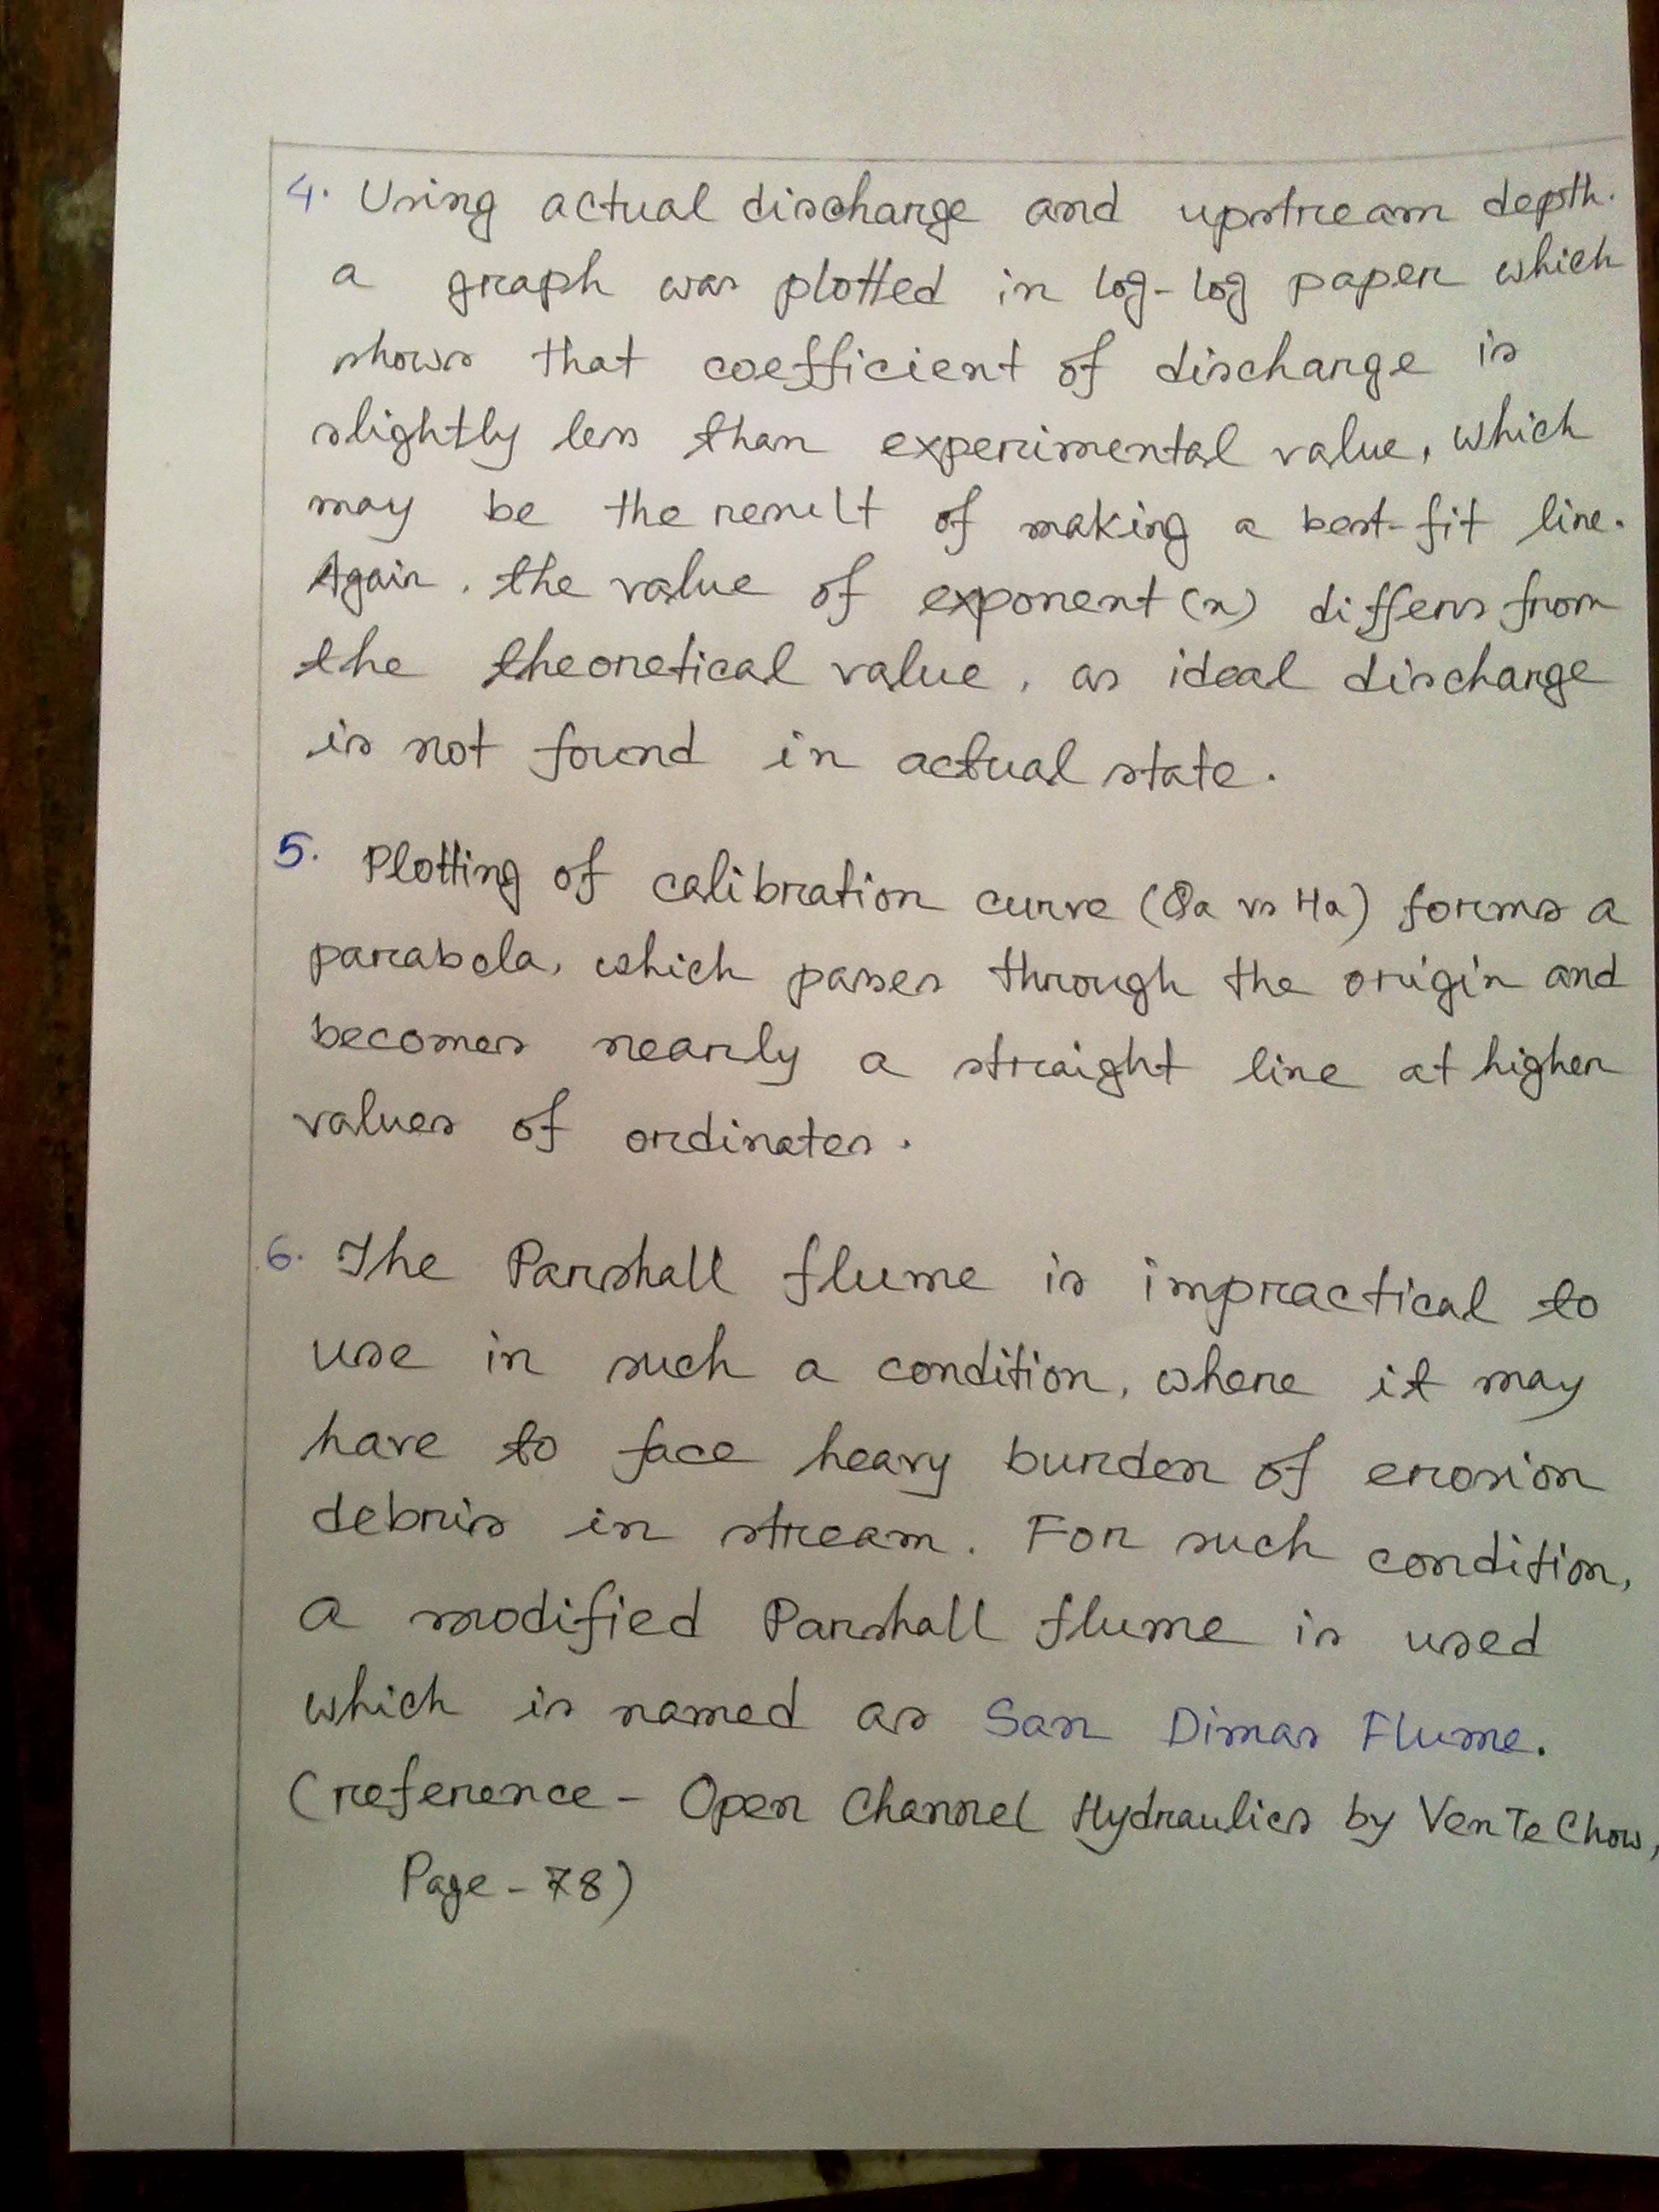 4. Using actual discharge and upstream depth.
a graph was plotted in log-log paper which
shows that coefficient of discharge is
slightly less than experimental value, which
may be the result of making a best-fit line.
Again, the value of exponent (n) differs from
the theoretical value, as ideal discharge
is not found in actual state.
5. Plotting of calibration curve (Qa vs Ha) forms a
parabola, which passes through the origin and
becomes nearly a straight line at higher
values of ordinates.
6. The Parshall flume is impractical to
use in such a condition, where it may
have to face heavy burden of erosion
debris in stream. For such condition,
a modified Parshall flume is used
which is named as San Dimas Flume.
(reference - Open Channel Hydraulics by Ven Te Chow,
Page - 78)